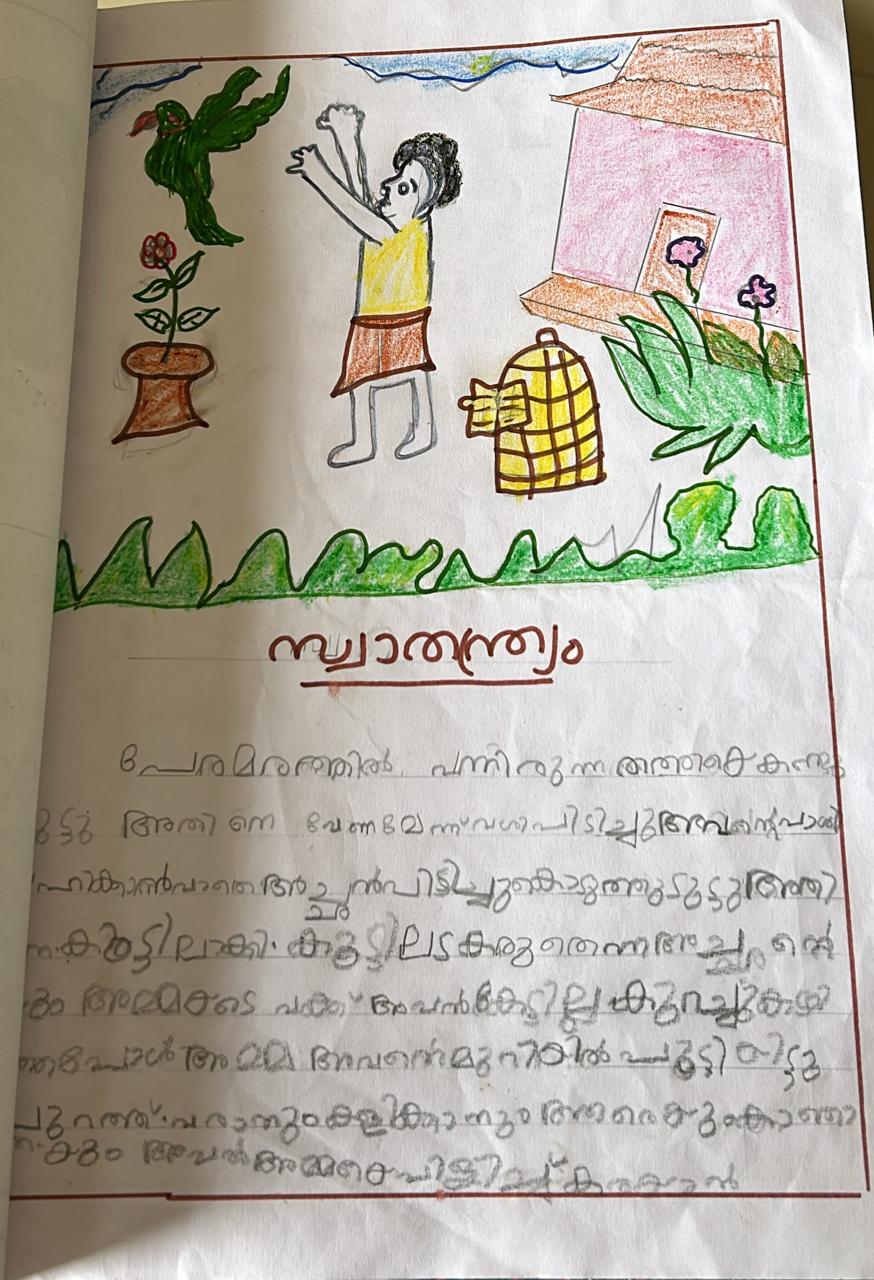 സ്വാതന്ത്ര്യം
പേരമരത്തിൽ വന്നിരുന്ന തത്തക്കെ കണ്ടു
ട്ടു അതിനെ വേണമെന്ന് വശിപിടിച്ചു അവന്റെ വാശി
ഹികാൻ വാതെ അച്ഛൻ പിടിച്ചു കൊടുത്തു ടുട്ടു അതി
കൂട്ടിലാക്കി. കൂട്ടിലടകരുതെന്ന അച്ഛന്റെ
അമ്മകടെ വക്ക് അവൻ കേട്ടില്ല കുറച്ചു കഴി
ഞ്ഞപോൾ അമ്മ അവനെ മുറിയിൽ പൂട്ടി യിട്ടു
പുറത്ത് വരാനും കളിക്കാനും ആരെക്കും കാണാ
അവൻ അമ്മകെ വിളിച്ച് കരയാൻ